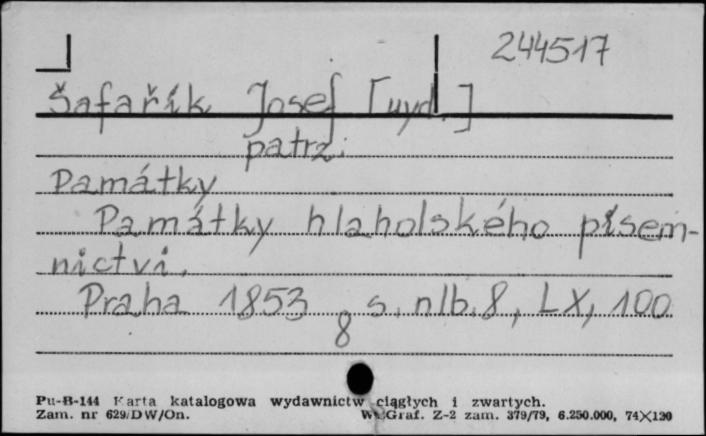 244517
Šafařík Josef [wyd.]
patrz:
Památky
Památky hlaholského písem-
nictvi.
Praha 1853 s. nlb. 8, LX, 100
8
Pu-B-144 Karta katalogowa wydawnictw ciągłych i zwartych.
Zam. nr 629/DW/On. W. Graf. Z-2 zam. 379/79, 6.250.000, 74×120